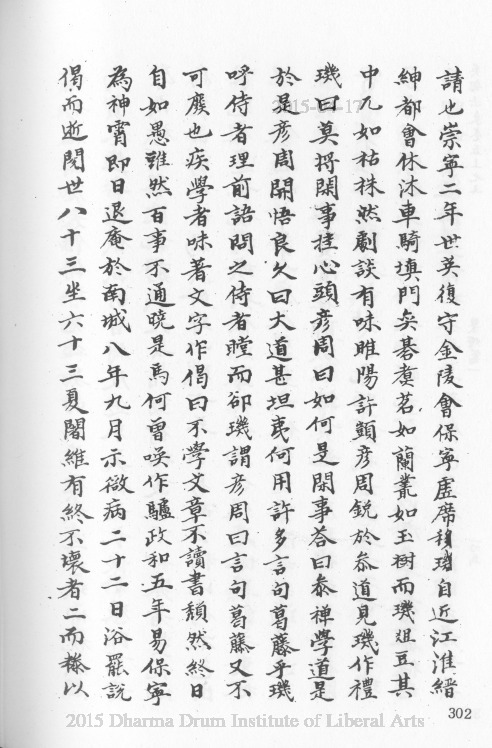 請也崇寧二年世英復守金陵會保寧虛席移璣自近江淮縉
紳都會休沐車騎填門矣碁煑茗如蘭叢如玉樹而璣俎豆其
中兀如枯株然劇談有味睢陽許顗彥周銳於叅道見璣作禮
璣曰莫將閑事挂心頭彥周曰如何是閑事答曰叅禪學道是
於是彥周開悟良久曰大道甚坦夷何用許多言句葛藤乎璣
呼侍者理前語問之侍者瞠而卻璣謂彥周曰言句葛藤又不
可廢也疾學者味著文字作偈曰不學文章不讀書頹然終日
自如愚雖然百事不通曉是馬何曾喚作驢政和五年易保寧
為神霄即日退庵於南城八年九月示微病二十二日浴罷說
偈而逝閱世八十三坐六十三夏闍維有終不壞者二而糝以
302
2015-04-17
2015 Dharma Drum Institute of Liberal Arts